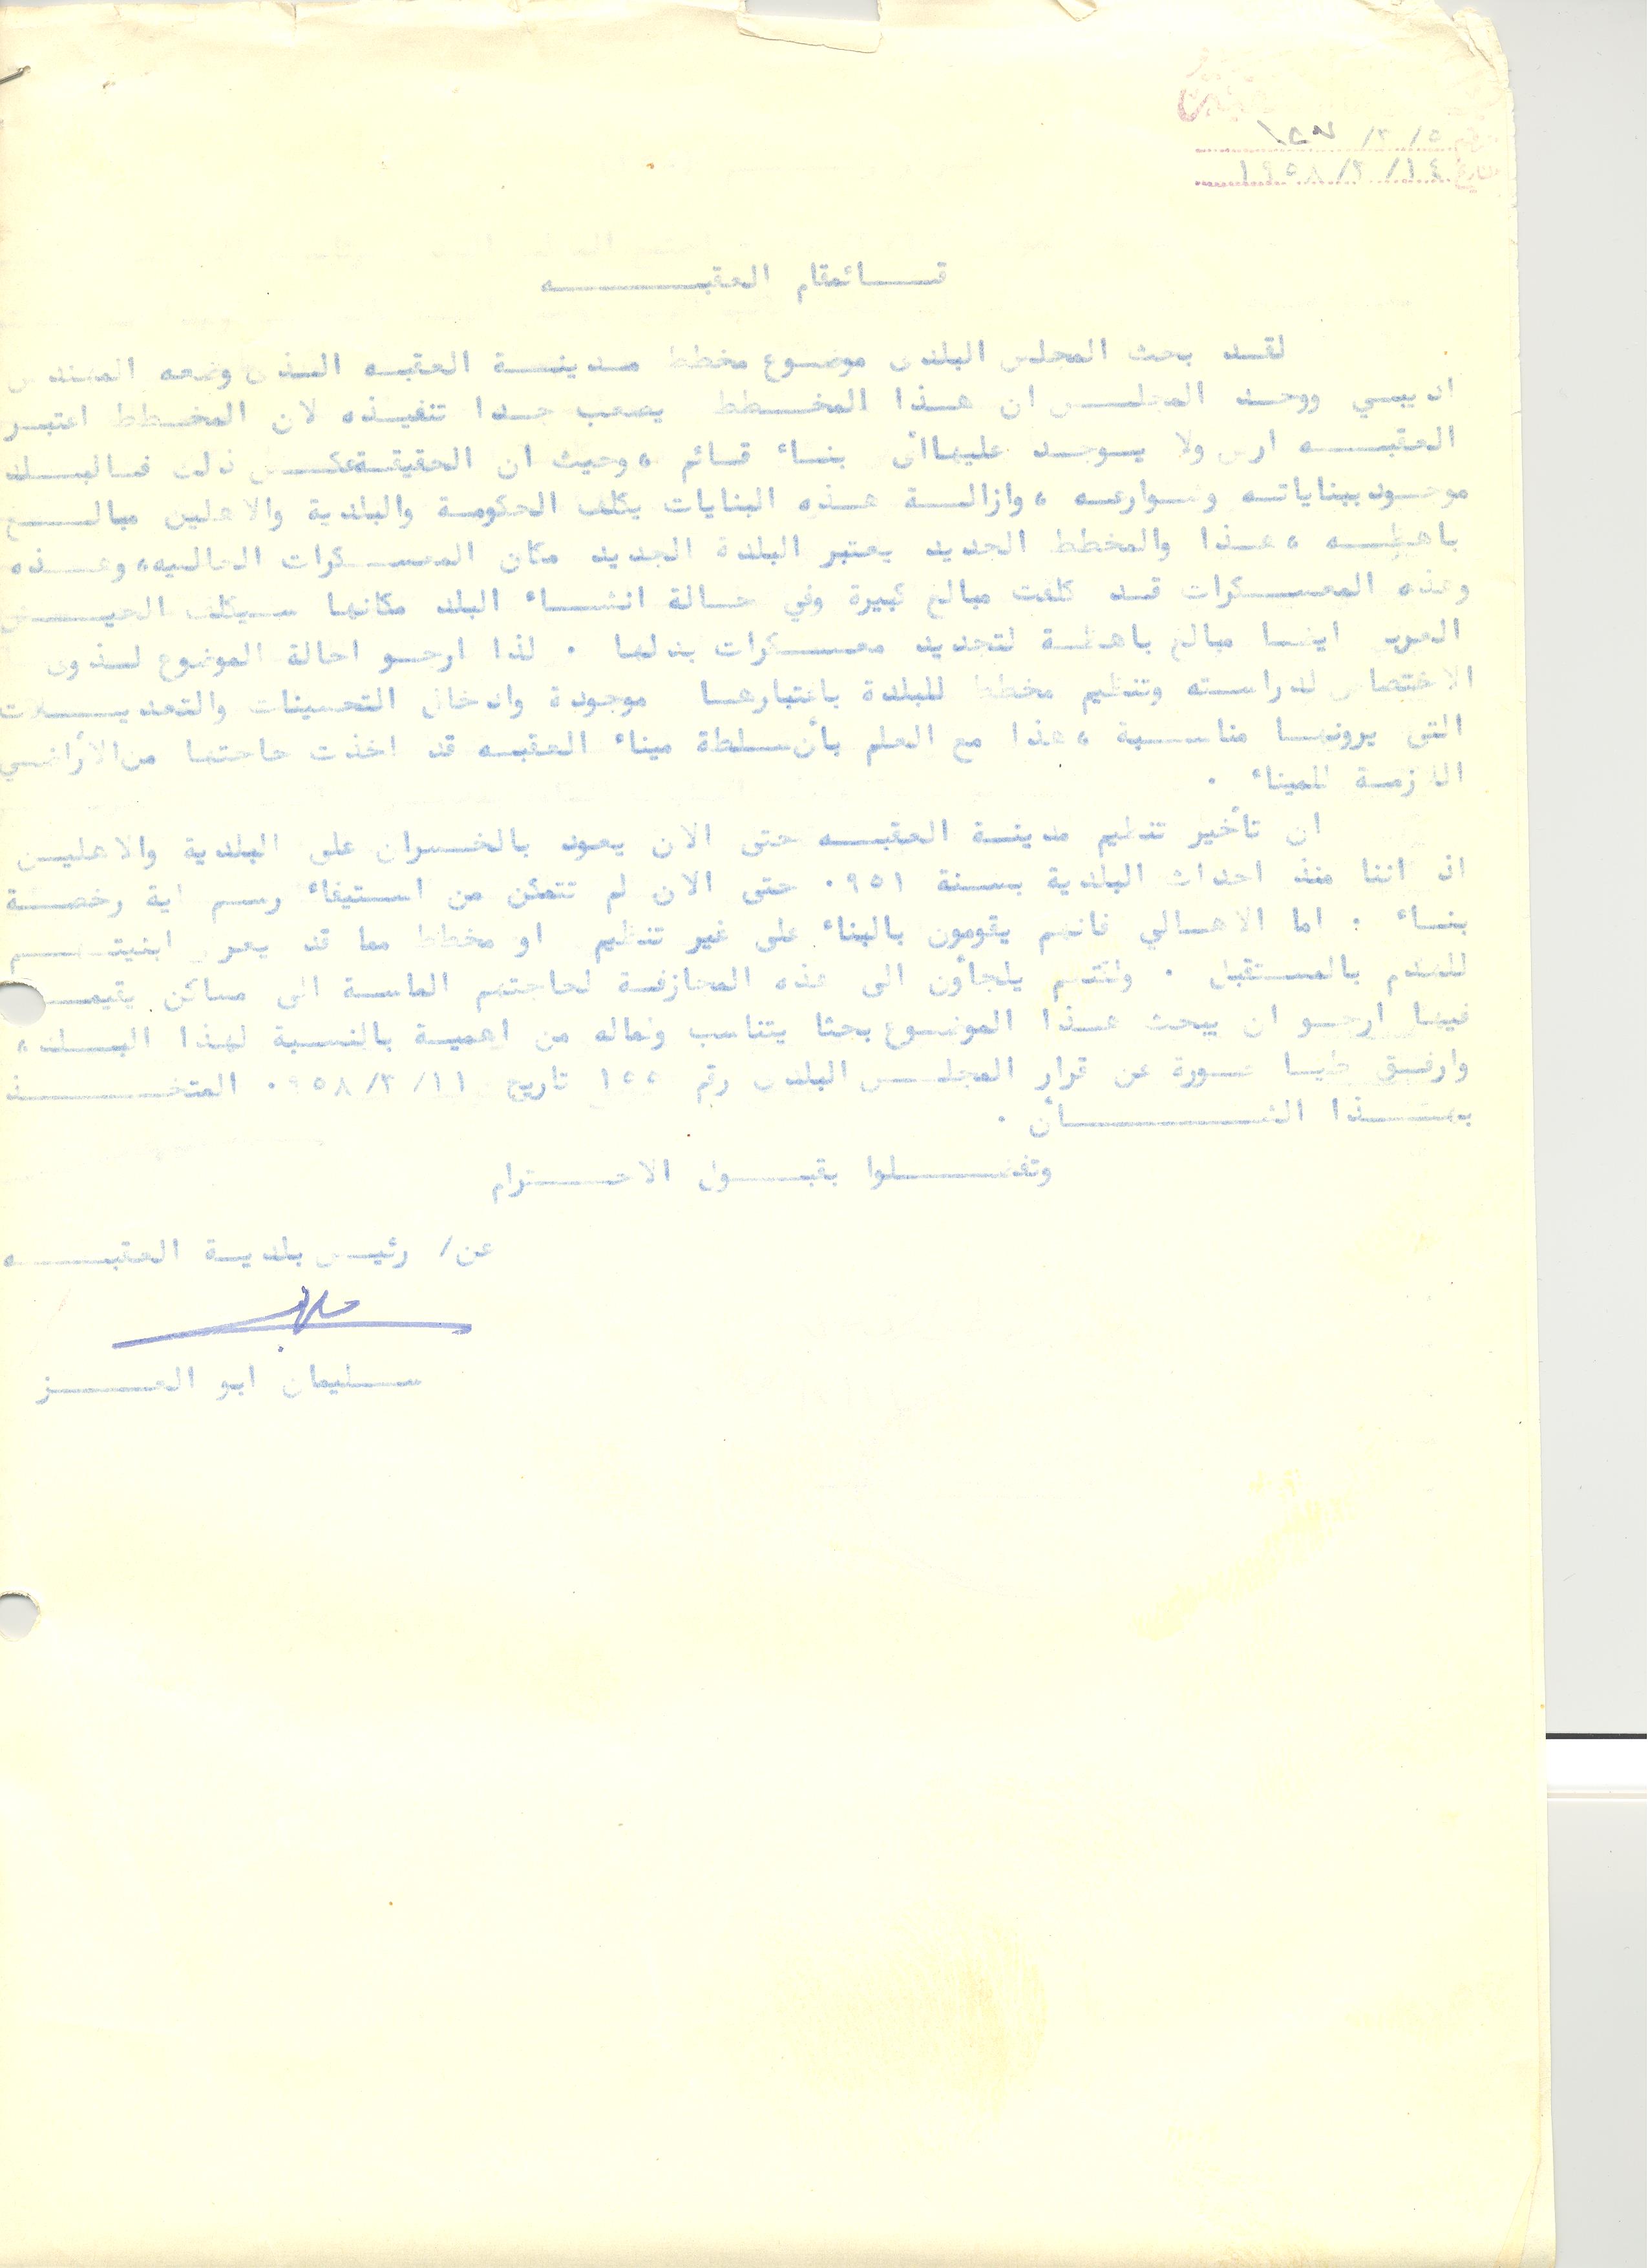 ٥/٣/١٥٧
١٤/٣/١٩٥٨
قائمقام العقبه
لقد بحث المجلس البلدى موضوع مخطط مدينة العقبه الذى وضعه المهندس
ووجد المجلس ان هذا المخطط يصعب جدا تنفيذه لان المخطط اعتبر
العقبه ارض ولا يوجد عليها اى بناء قائم ، وحيث ان الحقيقة عكس ذلك فالبلد
موجود ببناياته وشوارعه ، وازالة هذه البنايات يكلف الحكومة والبلدية والاهلين مبالغ
باهظه ، هذا والمخطط الجديد يعتبر البلدة الجديد مكان المعسكرات الحاليه ، وهذه
وهذه المعسكرات قد كلفت مبالغ كبيرة وفي حالة انشاء البلد مكانها سيكلف الجيش
العربي ايضا مبالغ باهظة لتجديد معسكرات بدلها . لذا ارجو احالة الموضوع لذوى
الاختصاص لدراسته وتنظيم مخطط للبلدة باعتبارها موجودة وادخال التحسينات والتعديلات
التى يرونها مناسبة ، هذا مع العلم بأن سلطة ميناء العقبه قد اخذت حاجتها من الأراضي
اللازمة للميناء .
ان تأخير تنظيم مدينة العقبه حتى الان يعود بالخسران على البلدية والاهلين
اذ اننا منذ احداث البلدية بسنة ٩٥١. حتى الان لم نتمكن من استيفاء رسم اية رخصة
بناء . اما الاهالي فانهم يقومون بالبناء على غير تنظيم او مخطط مما قد يعرض ابنيتهم
للهدم بالمستقبل . ولكنهم يلجأون الى هذه المجازفة لحاجتهم الماسة الى مساكن يقيمون
فيها ارجو ان يبحث هذا الموضوع بحثا يتناسب وماله من اهمية بالنسبة لهذا البلد ،
وارفق طيا صورة عن قرار المجلس البلدى رقم ١٥٥ تاريخ ١١/٣/٩٥٨. المتخذ
بهذا الشأن .
وتفضلوا بقبول الاحترام
عن/ رئيس بلدية العقبه
سليمان ابو العز